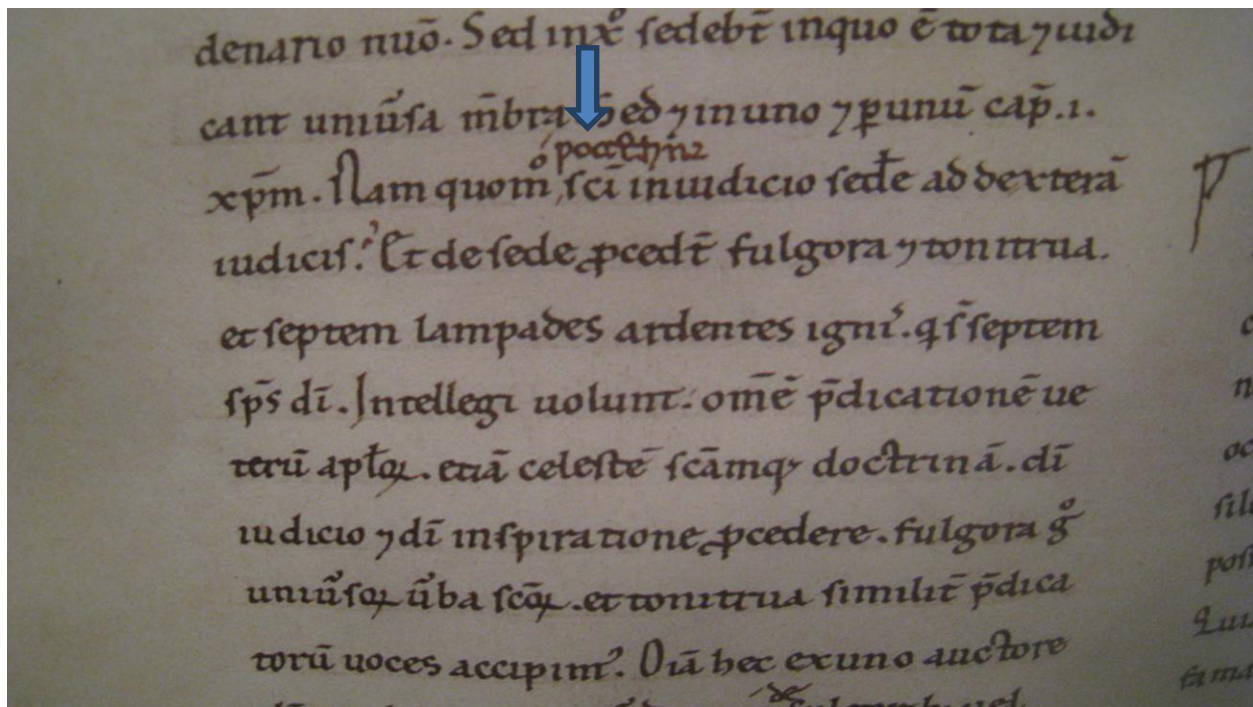 denario nuō. Sed in xº sedebt̄ inquo ē tota ⁊ iudi
cant uniūsa m̄bra Sed ⁊ in uno ⁊ ꝑunū cap̄.ı.
xp̄m. Nam quom̊ sc̄ı inıudicio sed̄e ad dexterā
ıudicıs.' Et desede ꝓcedt̄ fulgora ⁊ tonitrua.
et septem lampades ardentes igni'. q̄ s̄ septem
sp̄s dı̄. Intellegi uolunt. om̄ē p̄dicationē ue
terū apl̄oꝝ. etiā celestē sc̄amq; doctrinā. dı̄
ıudicio ⁊ dı̄ inspiratione ꝓcedere. fulgora gº
uniūsoꝝ ūba sc̄oꝝ. et tonitrua similit̄ p̄dica
torū uoces accipim'. Oı̄a hec exuno auctore